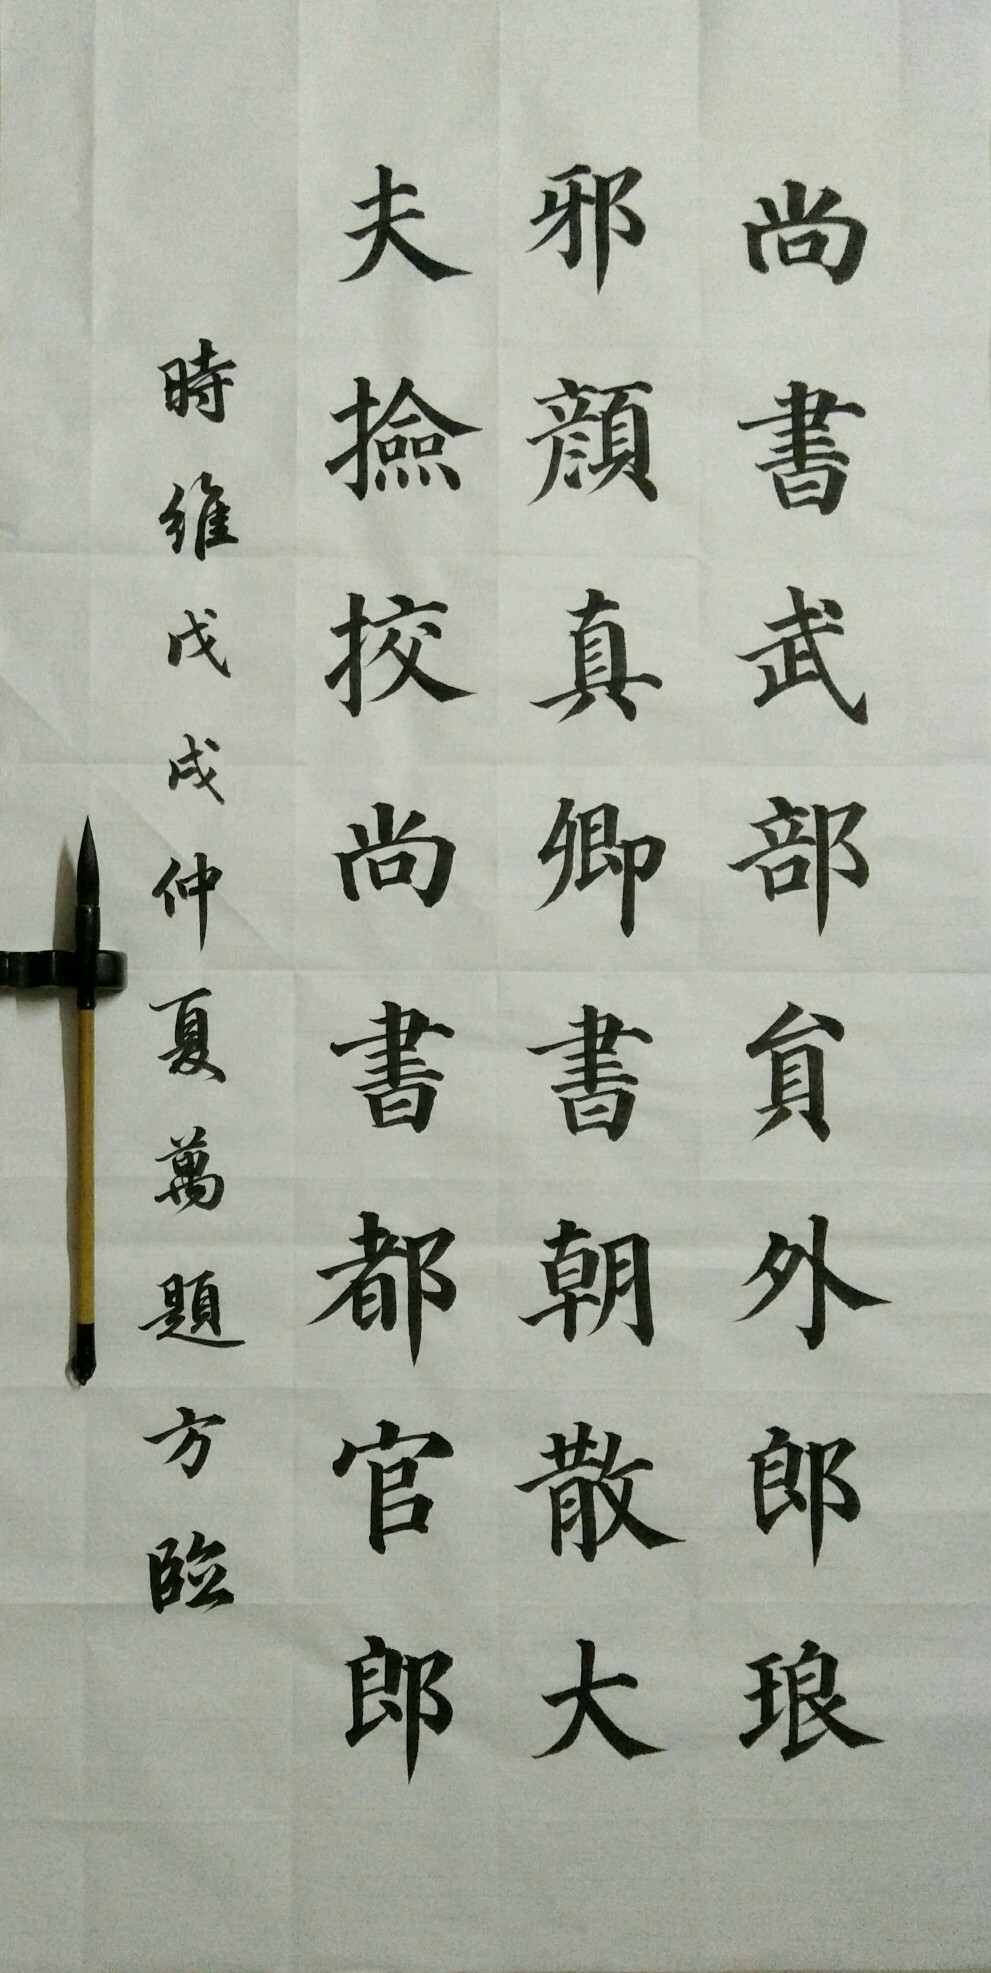 尚書武部貟外郎琅
邪顔真卿書朝散大
夫撿挍尚書都官郎
時維戊戌仲夏萬題方臨